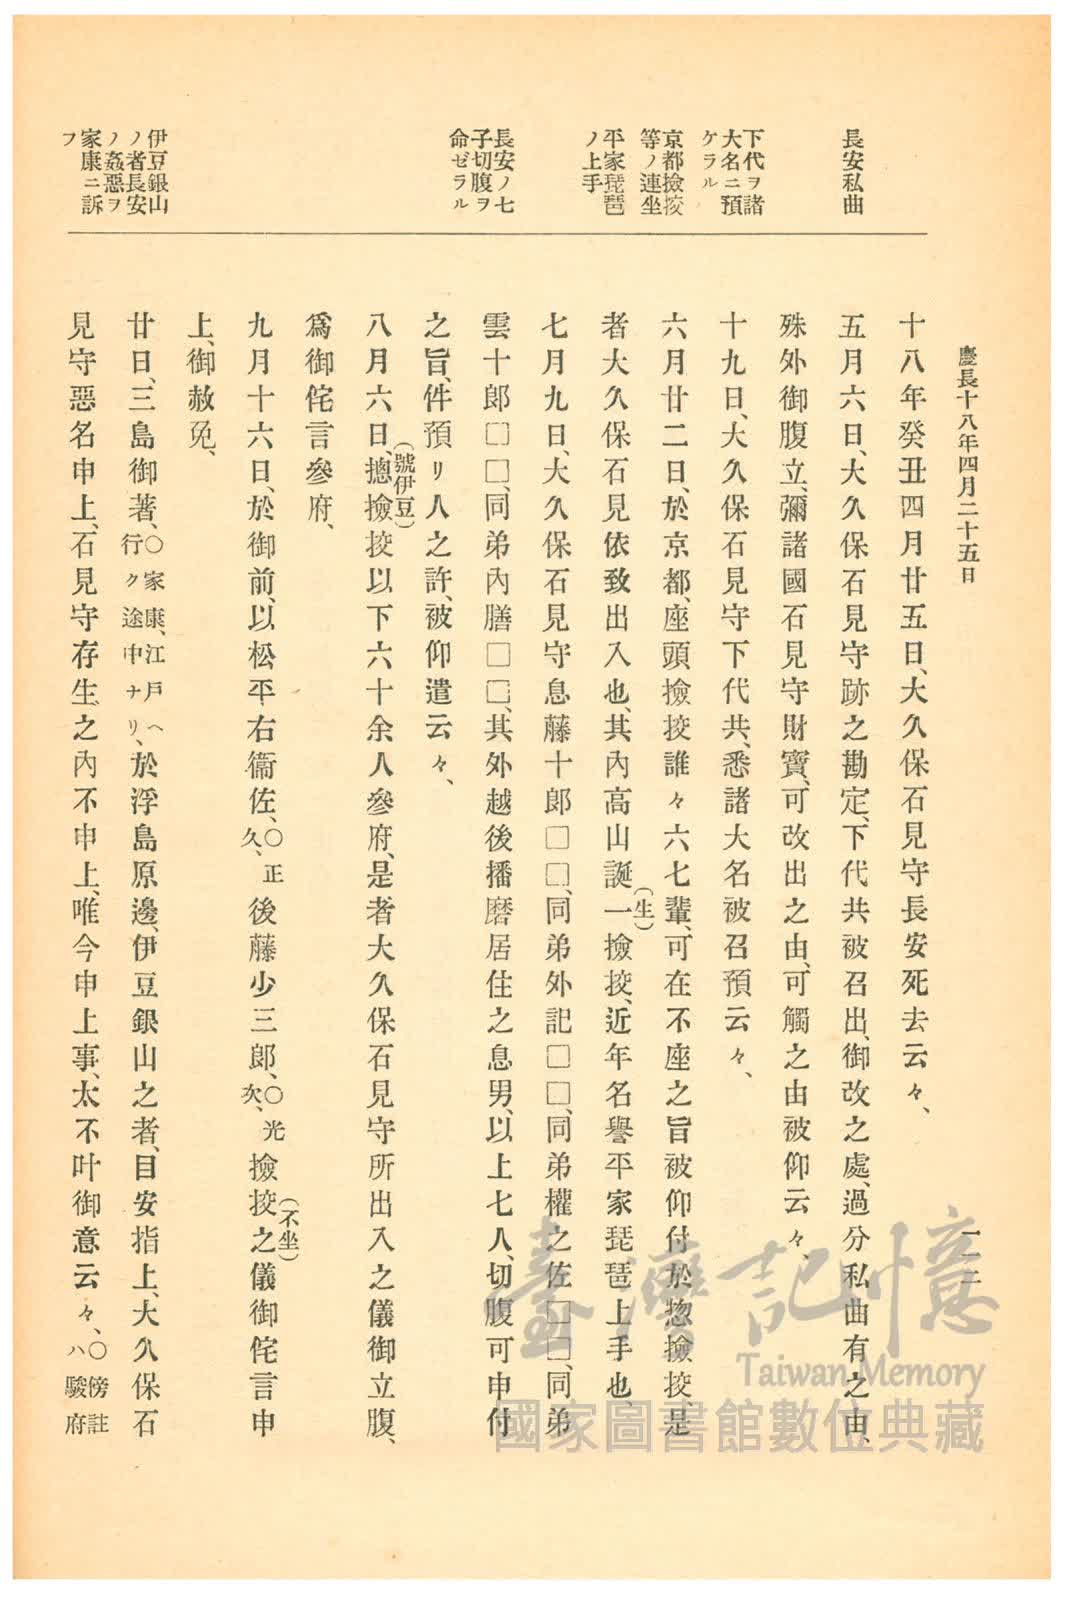 慶長十八年四月二十五日
一一二
長安私曲
下代ヲ諸
大名ニ預
ケラル
京都撿挍
等ノ連坐
平家琵琶
ノ上手
長安ノ七
子切腹ヲ
命ゼラル
伊豆銀山
ノ者長安
ノ姦惡ヲ
家康ニ訴
フ
十八年癸丑四月廿五日、大久保石見守長安死去云々、
五月六日、大久保石見守跡之勘定、下代共被召出、御改之處、過分私曲有之由、
殊外御腹立、彌諸國石見守財寶、可改出之由、可觸之由被仰云々、
十九日、大久保石見守下代共、悉諸大名被召預云々、
六月廿二日、於京都、座頭撿挍誰々六七輩、可在不座之旨被仰付於惣撿挍、是
者大久保石見依致出入也、其內高山誕(生)一撿挍、近年名譽平家琵琶上手也、
七月九日、大久保石見守息藤十郎□□、同弟外記□□、同弟權之佐□□、同弟
雲十郎□□、同弟內膳□□、其外越後播磨居住之息男、以上七人、切腹可申付
之旨、件預リ人之許、被仰遣云々、
八月六日、摠撿挍(號伊豆)以下六十余人參府、是者大久保石見守所出入之儀御立腹、
爲御侘言參府、
九月十六日、於御前、以松平右衞佐、○正久、後藤少三郎、○光次、撿挍之(不坐)儀御侘言申
上、御赦免、
廿日、三島御著、○家康、江戶へ行ク途中ナリ、於浮島原邊、伊豆銀山之者、目安指上、大久保石
見守惡名申上、石見守存生之內不申上、唯今申上事、太不叶御意云々、○傍註ハ駿府
臺灣記憶
Taiwan Memory
國家圖書館數位典藏